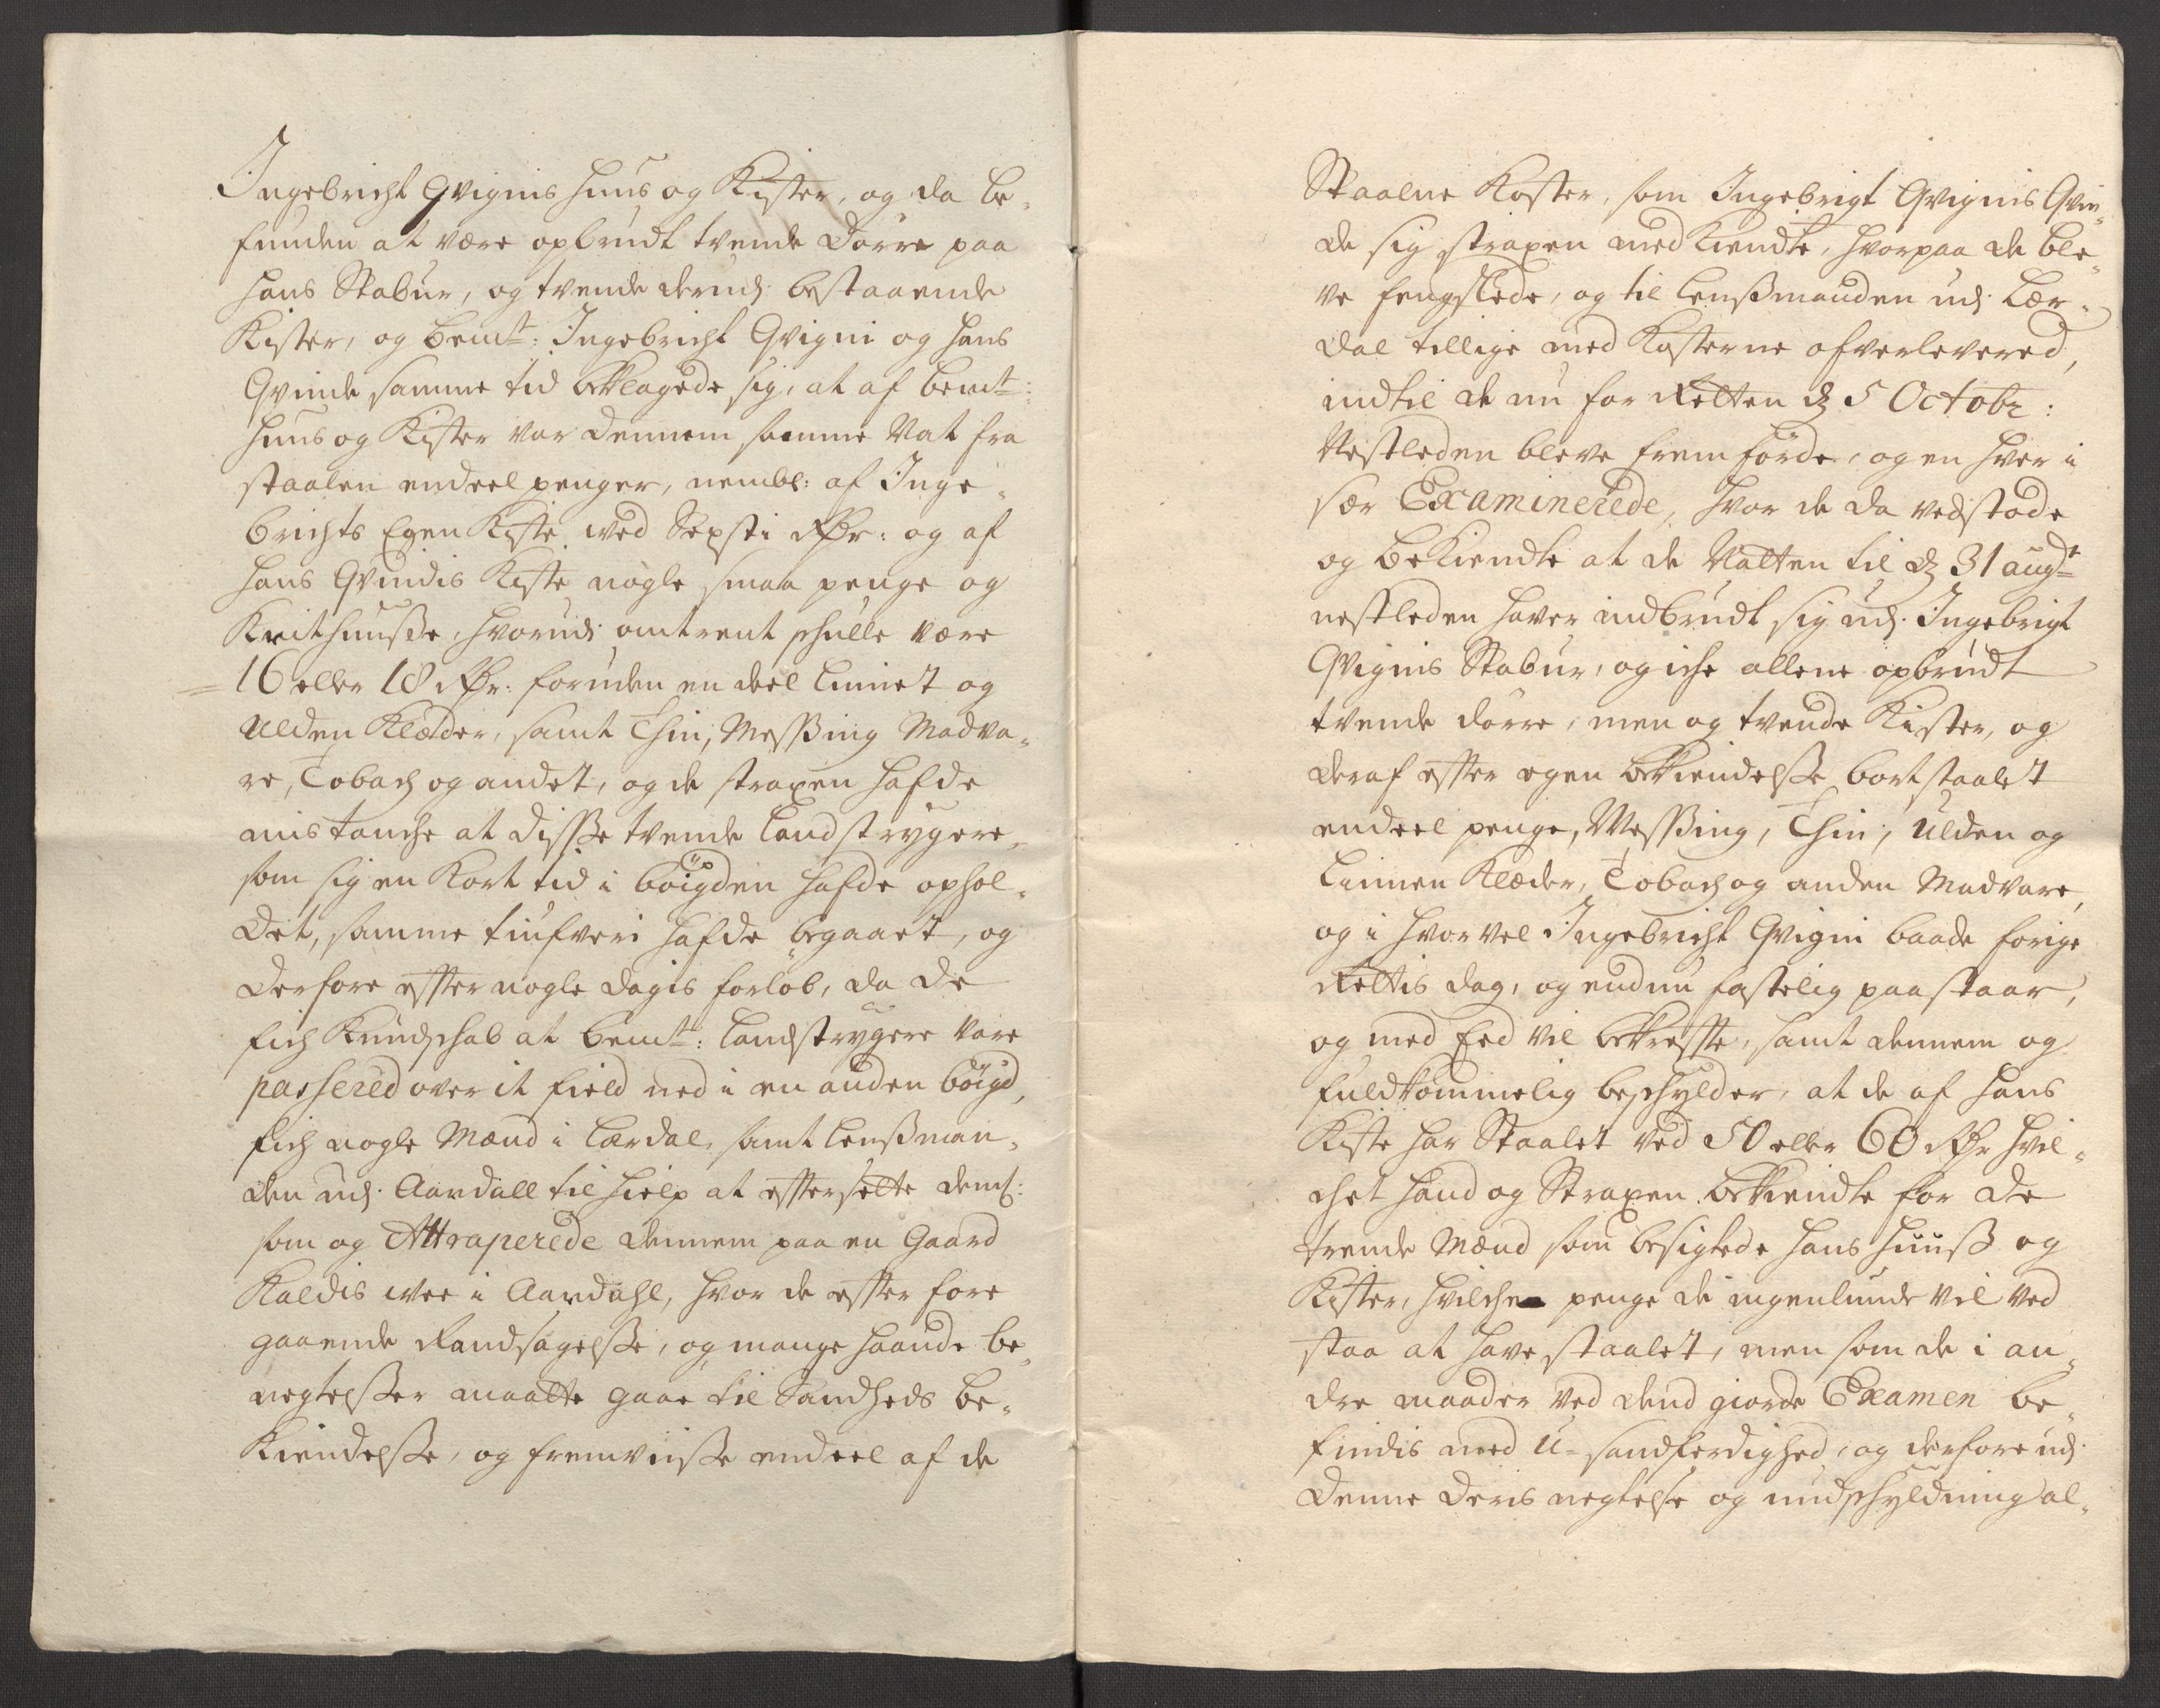 Ingebricht Qvignis huus og Kister, og da be-
funden at være opbrudt tvende Dörre paa
hans Stabur, og tvende derudj bestaaende
Kister, og bemt: Ingebricht Qvigni og hans
Qvinde samme tid beklagede sig, at af bemt:
huus og Kister var dennem samme Nat fra
staalen endeel penger, nembl: af Inge-
brichts Egen Kiste wed Sexsti Rdr: og af
hans Qvindis Kiste nogle smaa penge og
Knithuusße, hvorudj omtrent schulle være
16 eller 18 Rdr: foruden en deel linnet og
ulden Klæder, samt Thin, Messßing Madva-
re, Tobach og andet, og de straxen hafde
mistanche at disse tvende Landstrygere,
som sig en Kort tid i böigden hafde ophol-
det, samme tiufveri hafde begaaet, og
derfore efter nogle dagis forlöb, da de
fich Kundschab at bemt: Landstrygere vare
passered over it field ned i en anden böigd,
fich nogle Mænd i Lærdal, samt Lensßman-
den udj Aardall til hielp at eftersette dem:
som og Attraperede dennem paa en Gaard
Kaldis wee i Aardahl, hvor de efter fore
gaaende Randsagelsße, og mange haande be-
negtelsßer maatte gaae til Sandheds be-
Kiendelsße, og fremviisße endeel af de
Staalne Koster, som Ingebrigt Qvignis Qvin-
de sig straxen med Kiendte, hvorpaa de ble-
ve fengslede, og til Lensßmanden udj Lær-
dal tillige med Kosterne ofverlevered,
indtil de nu for Retten d 5 Octobr:
Nestleden bleve fremförde, og en hver i
sær Examinerede, hvor de da vedstode
og beKiendte at de Natten til d 31 augt
nestleden haver indbrudt sig udj Ingebrigt
Qvignis Stabur, og iche allene opbrudt
tvende dörre, men og tvende Kister, og
deraf efter egen bekiendelsße bortstaalet
endeel penge, Messßing, Thin, ulden og
Linnen Klæder, Tobach og anden Madvare,
og i hvor vel Ingebricht Qvigni baade forige
Rettis dag, og endnu fastelig paastaar,
og med Eed vil bekrefte, samt dennem og
fuldkommelig beschylder, at de af hans
Kiste har Staalet ved 50 eller 60 Rdr hvil-
chet hand og Straxen bekiendte for de
trende Mænd som besigtede hans huusß og
Kister, hvilche penge de ingenlunde vil ved
staa at have staalet, men som de i an-
dre maader ved dend giorde Examen be-
findis med U-sandferdighed, og derfore udj
denne deris negtelse og undschyldning al-